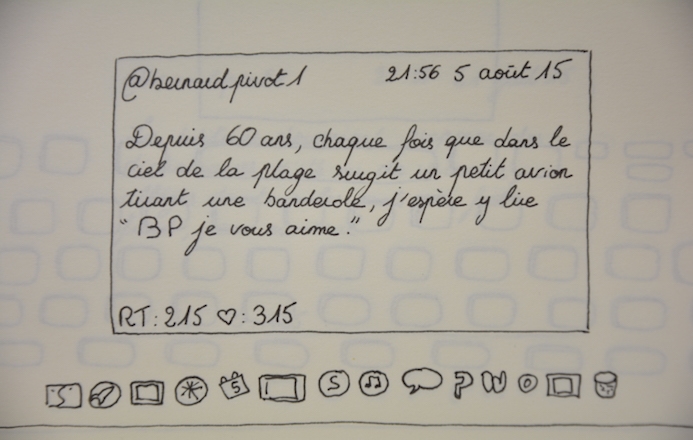 @bernardpivot1 21:56 5 août 15
Depuis 60 ans, chaque fois que dans le
ciel de la plage surgit un petit avion
tirant une banderole, j'espère y lire
"BP je vous aime."
RT: 215 ♡: 315
S 5 S P W O